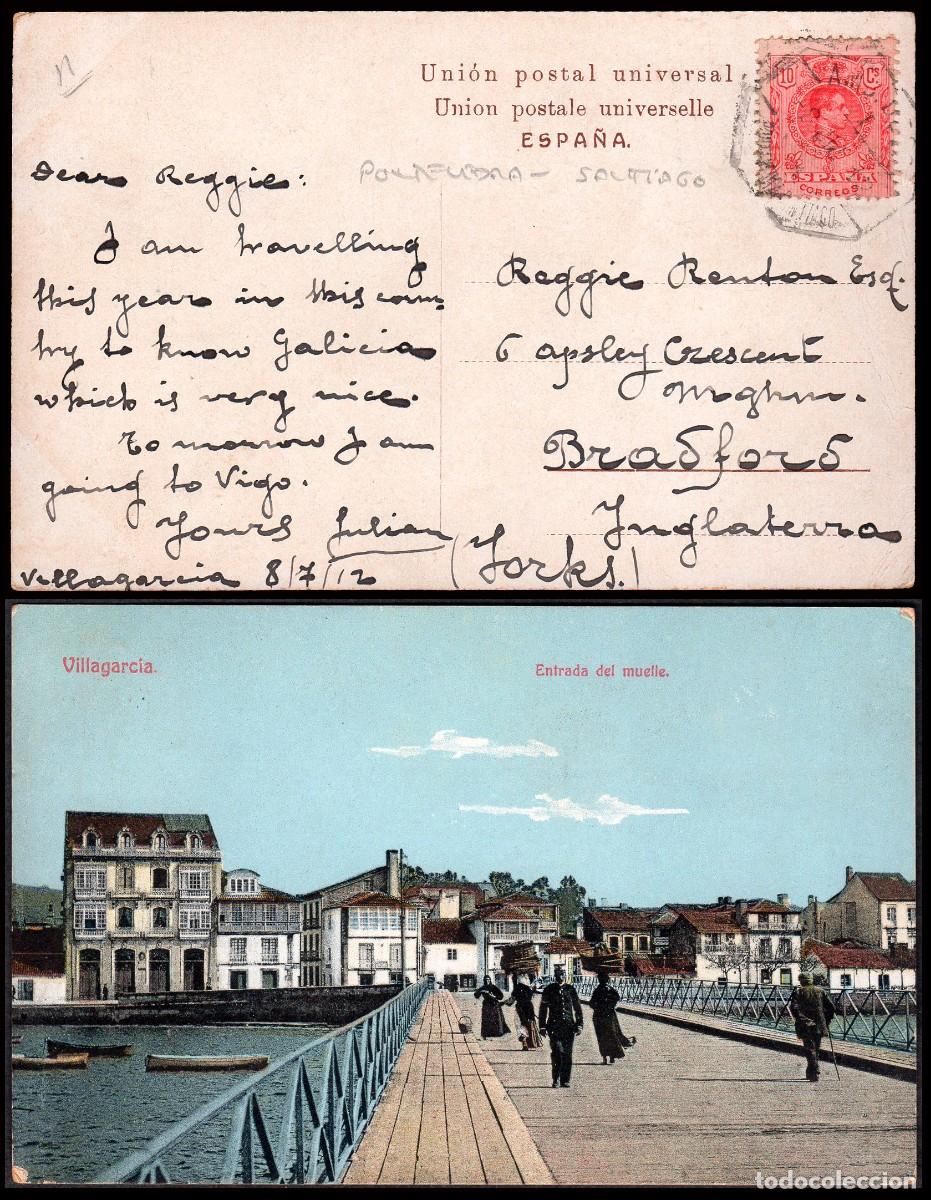 Unión postal universal
Union postale universelle
ESPAÑA.
10 Cs
ESPAÑA
CORREOS
PONTEVEDRA - SANTIAGO
Dear Reggie:
I am travelling
this year in this coun-
try to know Galicia
which is very nice.
To morrow I am
going to Vigo.
Yours Julian
Villagarcia 8/7/12
Reggie Renton Esq.
6 Apsley Crescent
Bradford
Inglaterra
(Yorks.)
Villagarcía.
Entrada del muelle.
todocoleccion